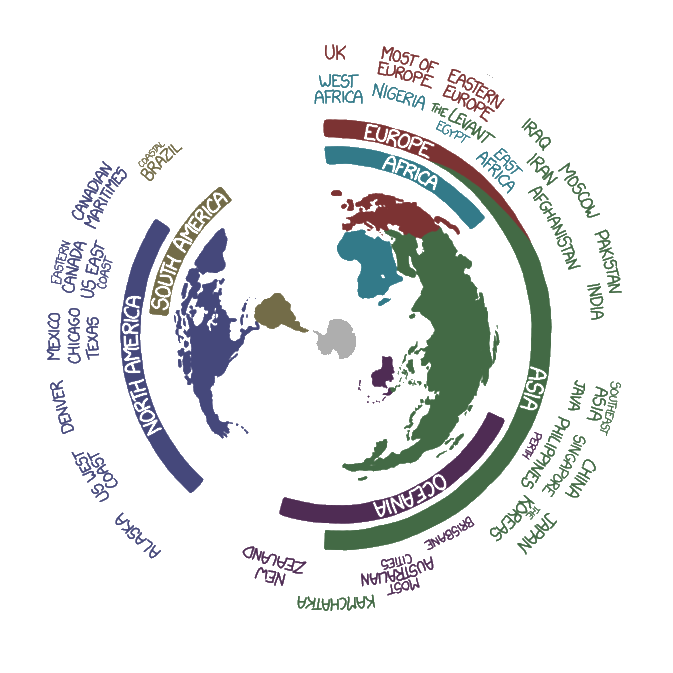 UK
MOST OF
EUROPE
EASTERN
EUROPE
WEST
AFRICA
NIGERIA
THE LEVANT
EGYPT
EAST
AFRICA
IRAQ
IRAN
MOSCOW
AFGHANISTAN
PAKISTAN
INDIA
EUROPE
AFRICA
ASIA
OCEANIA
SOUTHEAST
ASIA
JAVA
PERTH
PHILIPPINES
SINGAPORE
CHINA
THE
KOREAS
JAPAN
BRISBANE
MOST
AUSTRALIAN
CITIES
KAMCHATKA
NEW
ZEALAND
ALASKA
US WEST
COAST
DENVER
MEXICO
CHICAGO
TEXAS
EASTERN
CANADA
US EAST
COAST
CANADIAN
MARITIMES
COASTAL
BRAZIL
NORTH AMERICA
SOUTH AMERICA